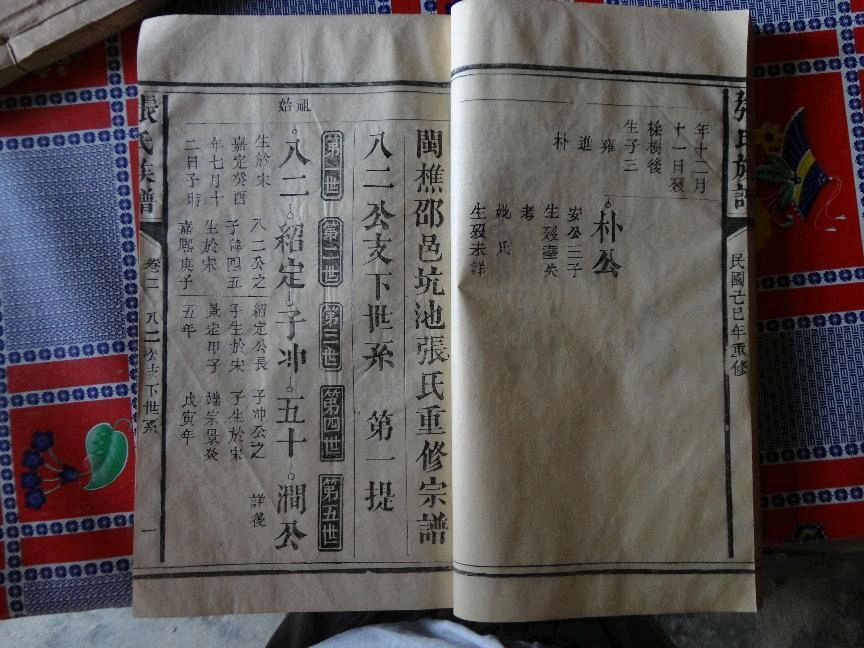 張氏族譜
民國亡巳年重修
年十二月
十一日歿
後
生子三
雍
進
朴
朴公
安公三子
生歿塟失
考
妣氏
生歿未詳
閩樵邵邑坑池張氏重修宗譜
八二公支下世系 第一提
第一世 第二世 第三世 第四世 第五世
始祖
八二 紹定 子冲 五十 澗公
生於宋
嘉定癸酉
年七月十
二日子時
八二公之
子諱四五
生於宋
嘉熙庚子
紹定公長
子生於宋
景定甲子
五年
子冲公之
子生於宋
端宗景炎
戊寅年
詳後
張氏族譜
卷二 八二公支下世系 一